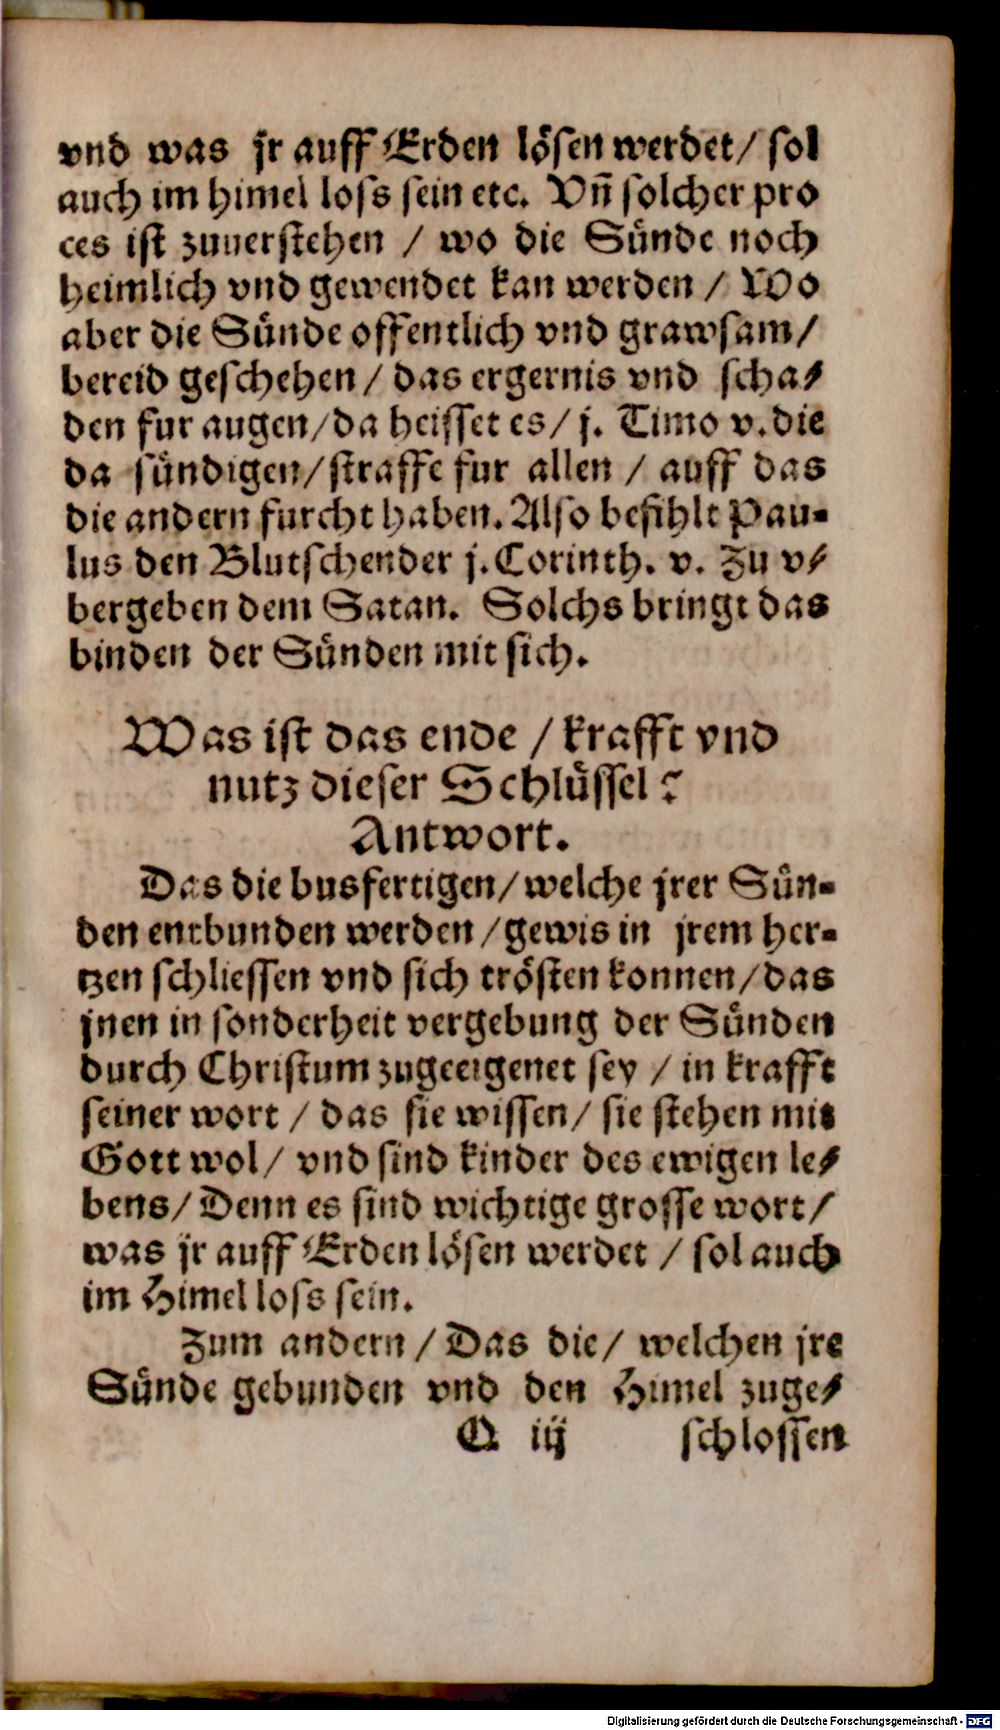 vnd was jr auff Erden lösen werdet/ sol
auch im himel loss sein etc. Vñ solcher pro
ces ist zuuerstehen / wo die Sünde noch
heimlich vnd gewendet kan werden / Wo
aber die Sünde offentlich vnd grawsam/
bereid geschehen / das ergernis vnd scha⸗
den fur augen/da heisset es/ j. Timo v. die
da sündigen/straffe fur allen / auff das
die andern furcht haben. Also befihlt Pau⸗
lus den Blutschender j. Corinth. v. Zu v⸗
bergeben dem Satan. Solchs bringt das
binden der Sünden mit sich.
Was ist das ende / krafft vnd
nutz dieser Schlüssel?
Antwort.
Das die busfertigen/ welche jrer Sün⸗
den entbunden werden /gewis in jrem her⸗
tzen schliessen vnd sich trösten konnen/ das
jnen in sonderheit vergebung der Sünden
durch Christum zugeeigenet sey / in krafft
seiner wort / das sie wissen/ sie stehen mit
Gott wol/ vnd sind kinder des ewigen le⸗
bens/ Denn es sind wichtige grosse wort/
was jr auff Erden lösen werdet / sol auch
im Himel loss sein.
Zum andern / Das die/ welchen jre
Sünde gebunden vnd den Himel zuge⸗
Q iij schlossen
Digitalisierung gefördert durch die Deutsche Forschungsgemeinschaft - DFG